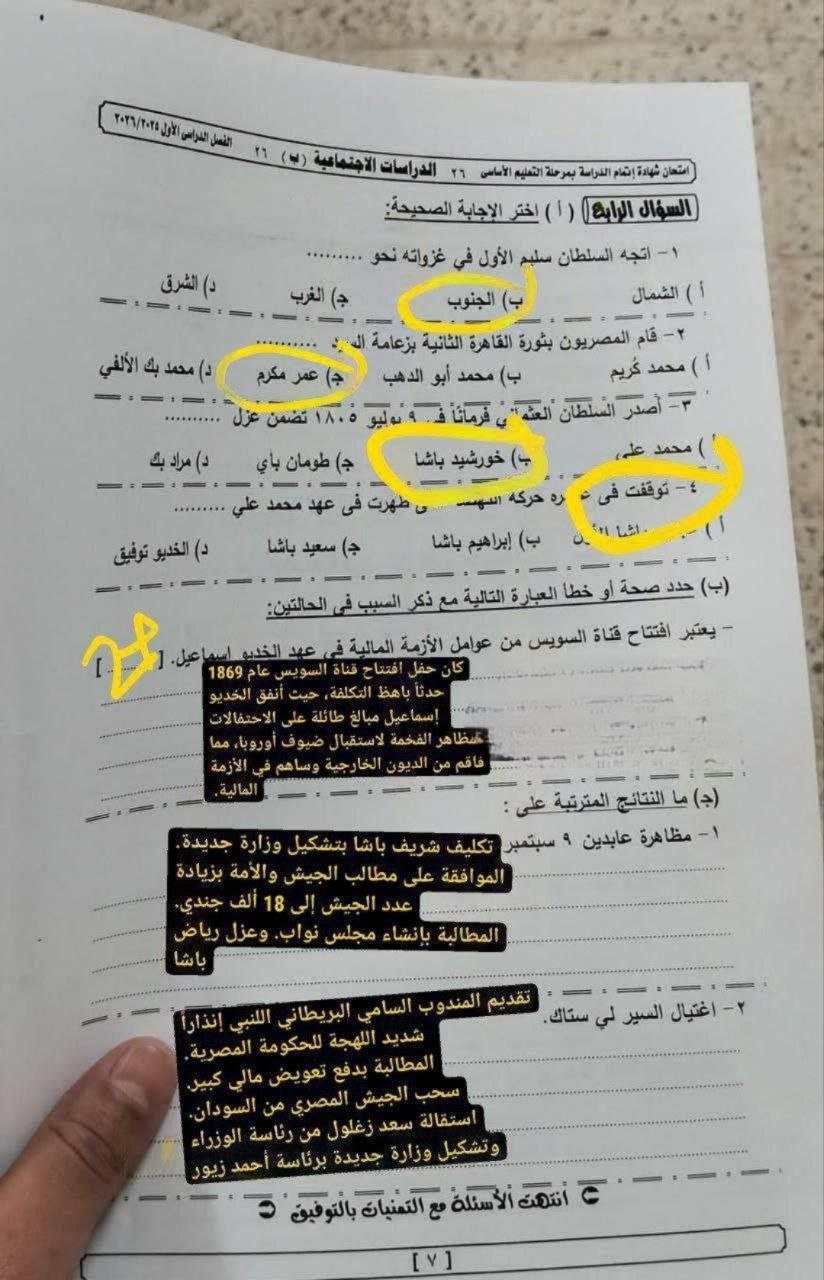 امتحان شهادة إتمام الدراسة بمرحلة التعليم الأساسى ٢٦ الدراسات الاجتماعية (ب) ٢٦ الفصل الدراسى الأول ٢٠٢٦/٢٠٢٥
السؤال الرابع ( أ ) اختر الإجابة الصحيحة:
١- اتجه السلطان سليم الأول في غزواته نحو .........
أ ) الشمال ب) الجنوب ج) الغرب د) الشرق
٢- قام المصريون بثورة القاهرة الثانية بزعامة السيد ..........
أ ) محمد كُريم ب) محمد أبو الدهب ج) عمر مكرم د) محمد بك الألفي
٣- أصدر السلطان العثماني فرماناً فى ٩ يوليو ١٨٠٥ تضمن عزل .........
أ ) محمد علي ب) خورشيد باشا ج) طومان باي د) مراد بك
٤- توقفت فى حركة ظهرت فى عهد محمد علي .........
أ ) باشا الأول ب) إبراهيم باشا ج) سعيد باشا د) الخديو توفيق
(ب) حدد صحة أو خطأ العبارة التالية مع ذكر السبب فى الحالتين:
- يعتبر افتتاح قناة السويس من عوامل الأزمة المالية فى عهد الخديو إسماعيل. [ ]
كان حفل افتتاح قناة السويس عام 1869
حدثاً باهظ التكلفة، حيث أنفق الخديو
إسماعيل مبالغ طائلة على الاحتفالات
مظاهر الفخمة لاستقبال ضيوف أوروبا، مما
فاقم من الديون الخارجية وساهم في الأزمة
المالية.
(ج) ما النتائج المترتبة على :
١- مظاهرة عابدين ٩ سبتمبر
تكليف شريف باشا بتشكيل وزارة جديدة.
الموافقة على مطالب الجيش والأمة بزيادة
عدد الجيش إلى 18 ألف جندي.
المطالبة بإنشاء مجلس نواب. وعزل رياض
باشا
٢- اغتيال السير لي ستاك.
تقديم المندوب السامي البريطاني اللنبي إنذاراً
شديد اللهجة للحكومة المصرية.
المطالبة بدفع تعويض مالي كبير.
سحب الجيش المصري من السودان.
استقالة سعد زغلول من رئاسة الوزراء
وتشكيل وزارة جديدة برئاسة أحمد زيور
انتهت الأسئلة مع التمنيات بالتوفيق
[ ٧ ]